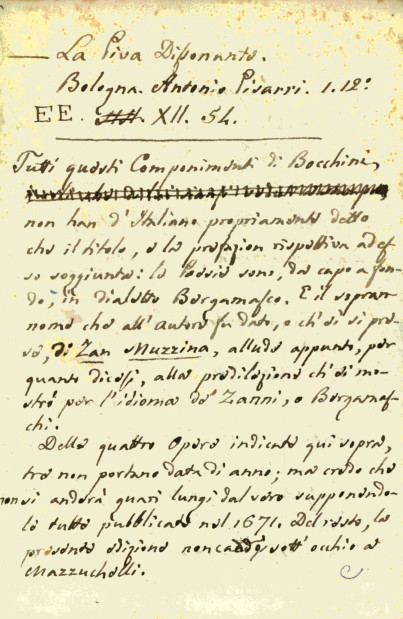 La Piva Dissonante.
Bologna. Antonio Pisarri. 1.12º
EE. XII. 54.
Tutti questi Componimenti di Bocchini,
non han d'Italiano propriamente detto
che il titolo, e la prefazion rispettiva ad es-
so soggiunta: le Poesie sono, da capo a fon-
do, in dialetto Bergamasco. E il sopran-
nome che all'autore fu dato, o ch'ei si pre-
se, di Zan Muzzina, allude appunto, per
quanto dicesi, alla predilezione ch'ei mo-
strò per l'idioma de' Zanni, o Bergamas-
chi.
Delle quattro Opere indicate qui sopra,
tre non portano data di anno; ma credo che
non si anderà guari lungi dal vero supponendo-
le tutte pubblicate nel 1671. Del resto, la
presente edizione non cadde sott'occhio al
Mazzuchelli.